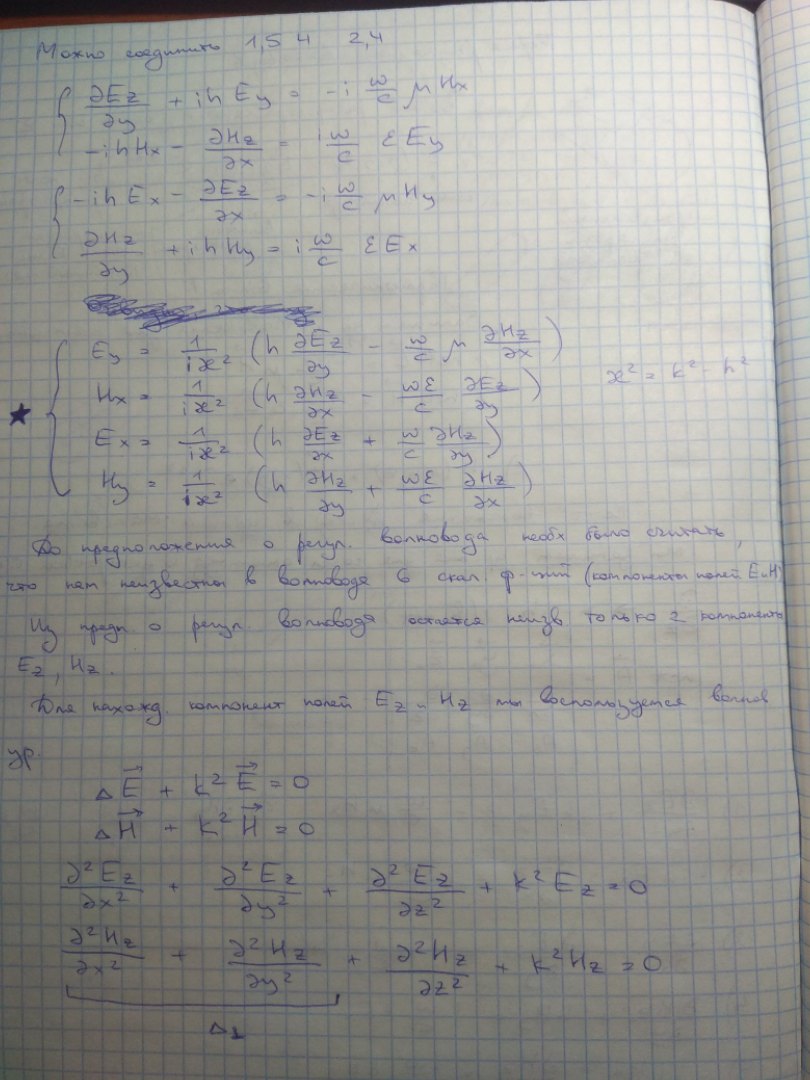 Можно соединить 1,5 и 2,4
∂Ez/∂y + ihEy = -i ω/c μHx
-ihHx - ∂Hz/∂x = i ω/c εEy
-ihEx - ∂Ez/∂x = -i ω/c μHy
∂Hz/∂y + ihHy = i ω/c εEx
Ey = 1/iæ² (h ∂Ez/∂y - ω/c μ ∂Hz/∂x)
Hx = 1/iæ² (h ∂Hz/∂x - ωε/c ∂Ez/∂y)
æ² = k² - h²
★
Ex = 1/iæ² (h ∂Ez/∂x + ω/c ∂Hz/∂y)
Hy = 1/iæ² (h ∂Hz/∂y + ωε/c ∂Hz/∂x)
До предположения о регул. волновода необх было считать,
что нам неизвестны в волноводе 6 скал. ф-ций (компоненты полей E и H)
Из предп. о регул. волновода остается неизв только 2 компоненты
Ez, Hz.
Для нахожд. компонент полей Ez и Hz мы воспользуемся волнов
ур.
ΔE⃗ + k²E⃗ = 0
ΔH⃗ + k²H⃗ = 0
∂²Ez/∂x² + ∂²Ez/∂y² + ∂²Ez/∂z² + k²Ez = 0
∂²Hz/∂x² + ∂²Hz/∂y² + ∂²Hz/∂z² + k²Hz = 0
Δ⊥